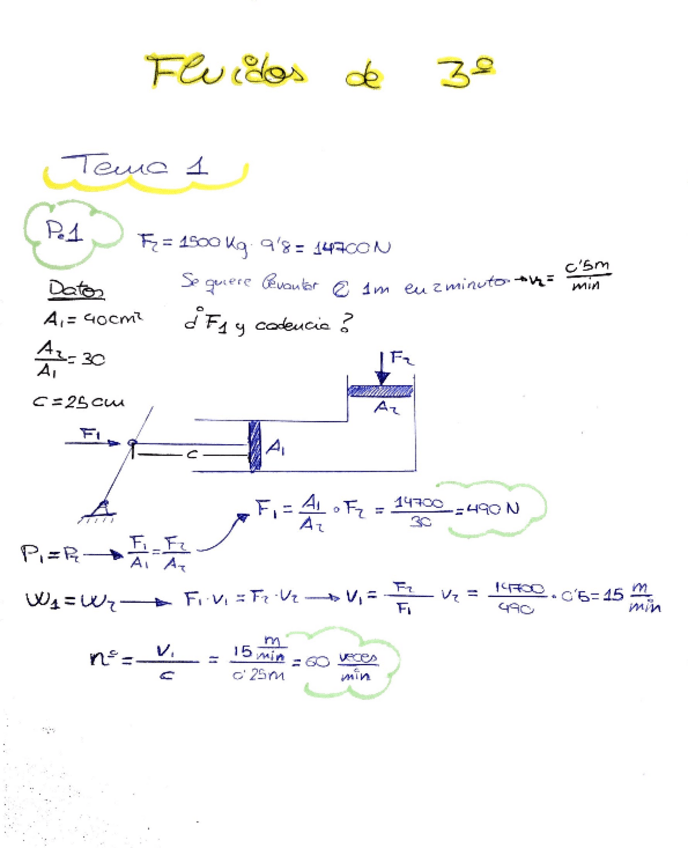 Fluidos de 3º
Tema 1
P.1
F₂ = 1500 Kg · 9'8 = 14700 N
Se quiere levantar 1m en 2 minutos → v₂ = 0'5m / min
Datos
A₁ = 40 cm²
¿ F₁ y cadencia ?
A₂ / A₁ = 30
C = 25 cm
F₂
A₂
F₁
C
A₁
A
F₁ = A₁ / A₂ · F₂ = 14700 / 30 = 490 N
P₁ = P₂ → F₁ / A₁ = F₂ / A₂
W₁ = W₂ → F₁ · v₁ = F₂ · v₂ → v₁ = F₂ / F₁ v₂ = 14700 / 490 · 0'5 = 15 m / min
nº = v₁ / c = 15 m/min / 0'25m = 60 veces / min